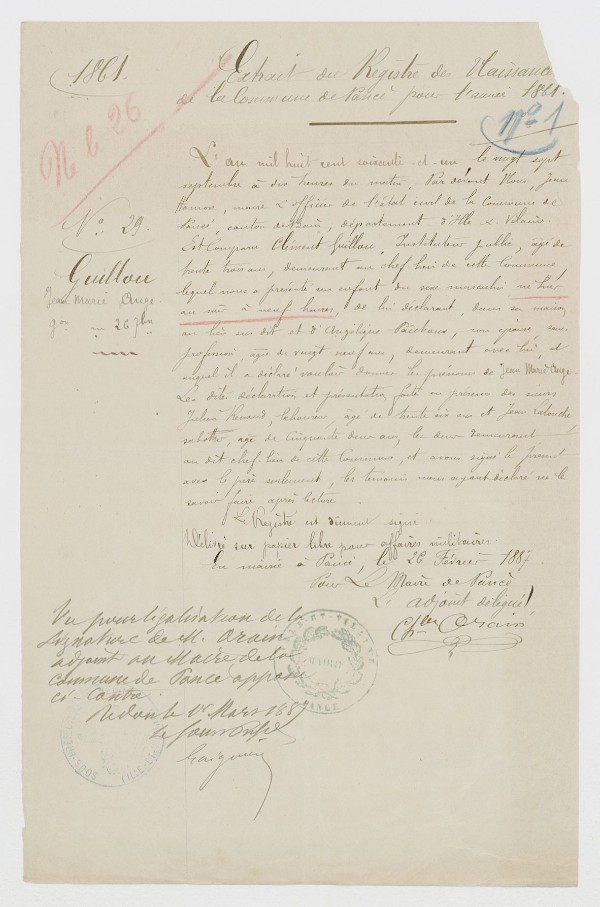 1861.
Extrait du Registre des Naissances
de la Commune de Pancé pour l'année 1861.
Né le 26
N° 1
L'an mil huit cent soixante-et-un le vingt sept
septembre à dix heures du matin, Par devant Nous, Jean
maire & officier de l'état civil de la Commune de
Pancé, canton de Bain, département d'Ille & Vilaine
Est Comparu Clément Guillou, Instituteur public, âgé de
trente trois ans, demeurant au chef-lieu de cette Commune
lequel nous a présenté un enfant du sexe masculin né hier
au soir à neuf heures, de lui déclarant, dans sa maison,
au lieu sus dit et d'Angélique son épouse, sans
profession, âgée de vingt neuf ans, demeurant avec lui, et
auquel il a déclaré vouloir donner les prénoms de Jean Marie Ange.
Les dites déclaration et présentation faites en présence des sieurs
Julien Renaud, laboureur, âgé de trente six ans et Jean Latouche
sabottier, âgé de Cinquante deux ans, les deux demeurant
au dit chef-lieu de cette Commune, et avons signé le présent
avec le père seulement, les témoins nous ayant déclaré ne le
savoir faire, après lecture.
Le Registre est dûment signé.
Délivré sur papier libre pour affaires militaires.
En mairie à Pancé, le 26 Février 1887.
Pour Le Maire de Pancé
L'adjoint délégué
Orain
N° 29.
Guillou
Jean Marie Ange
26 7bre
Vu pour légalisation de la
signature de M. Orain
adjoint au Maire de la
commune de Pancé apposée
ci-contre
Redon le 1er Mars 188
le sous Préfet
MAIRIE
PANCÉ